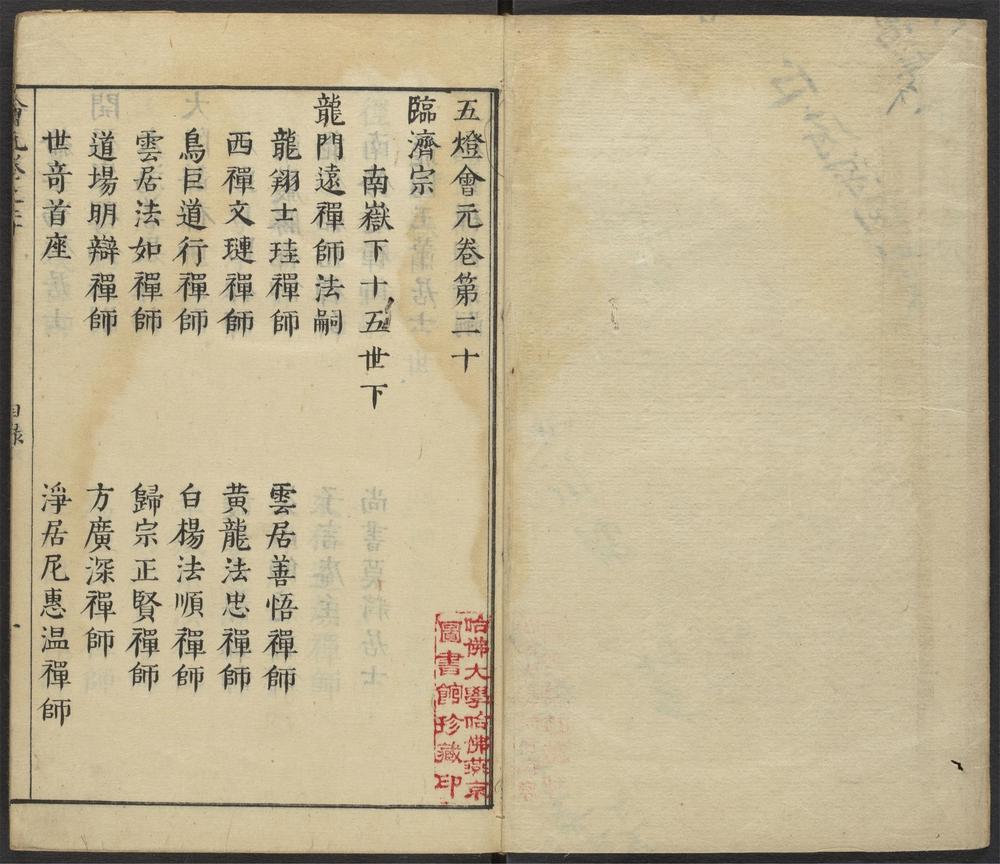 五燈會元卷第二十
臨濟宗
南嶽下十五世下
龍門遠禪師法嗣
龍翔士珪禪師
雲居善悟禪師
西禪文璉禪師
黄龍法忠禪師
烏巨道行禪師
白楊法順禪師
雲居法如禪師
歸宗正賢禪師
道場明辯禪師
方廣深禪師
世竒首座
淨居尼惠温禪師
目錄
一
哈佛大學哈佛燕京
圖書館珍藏印